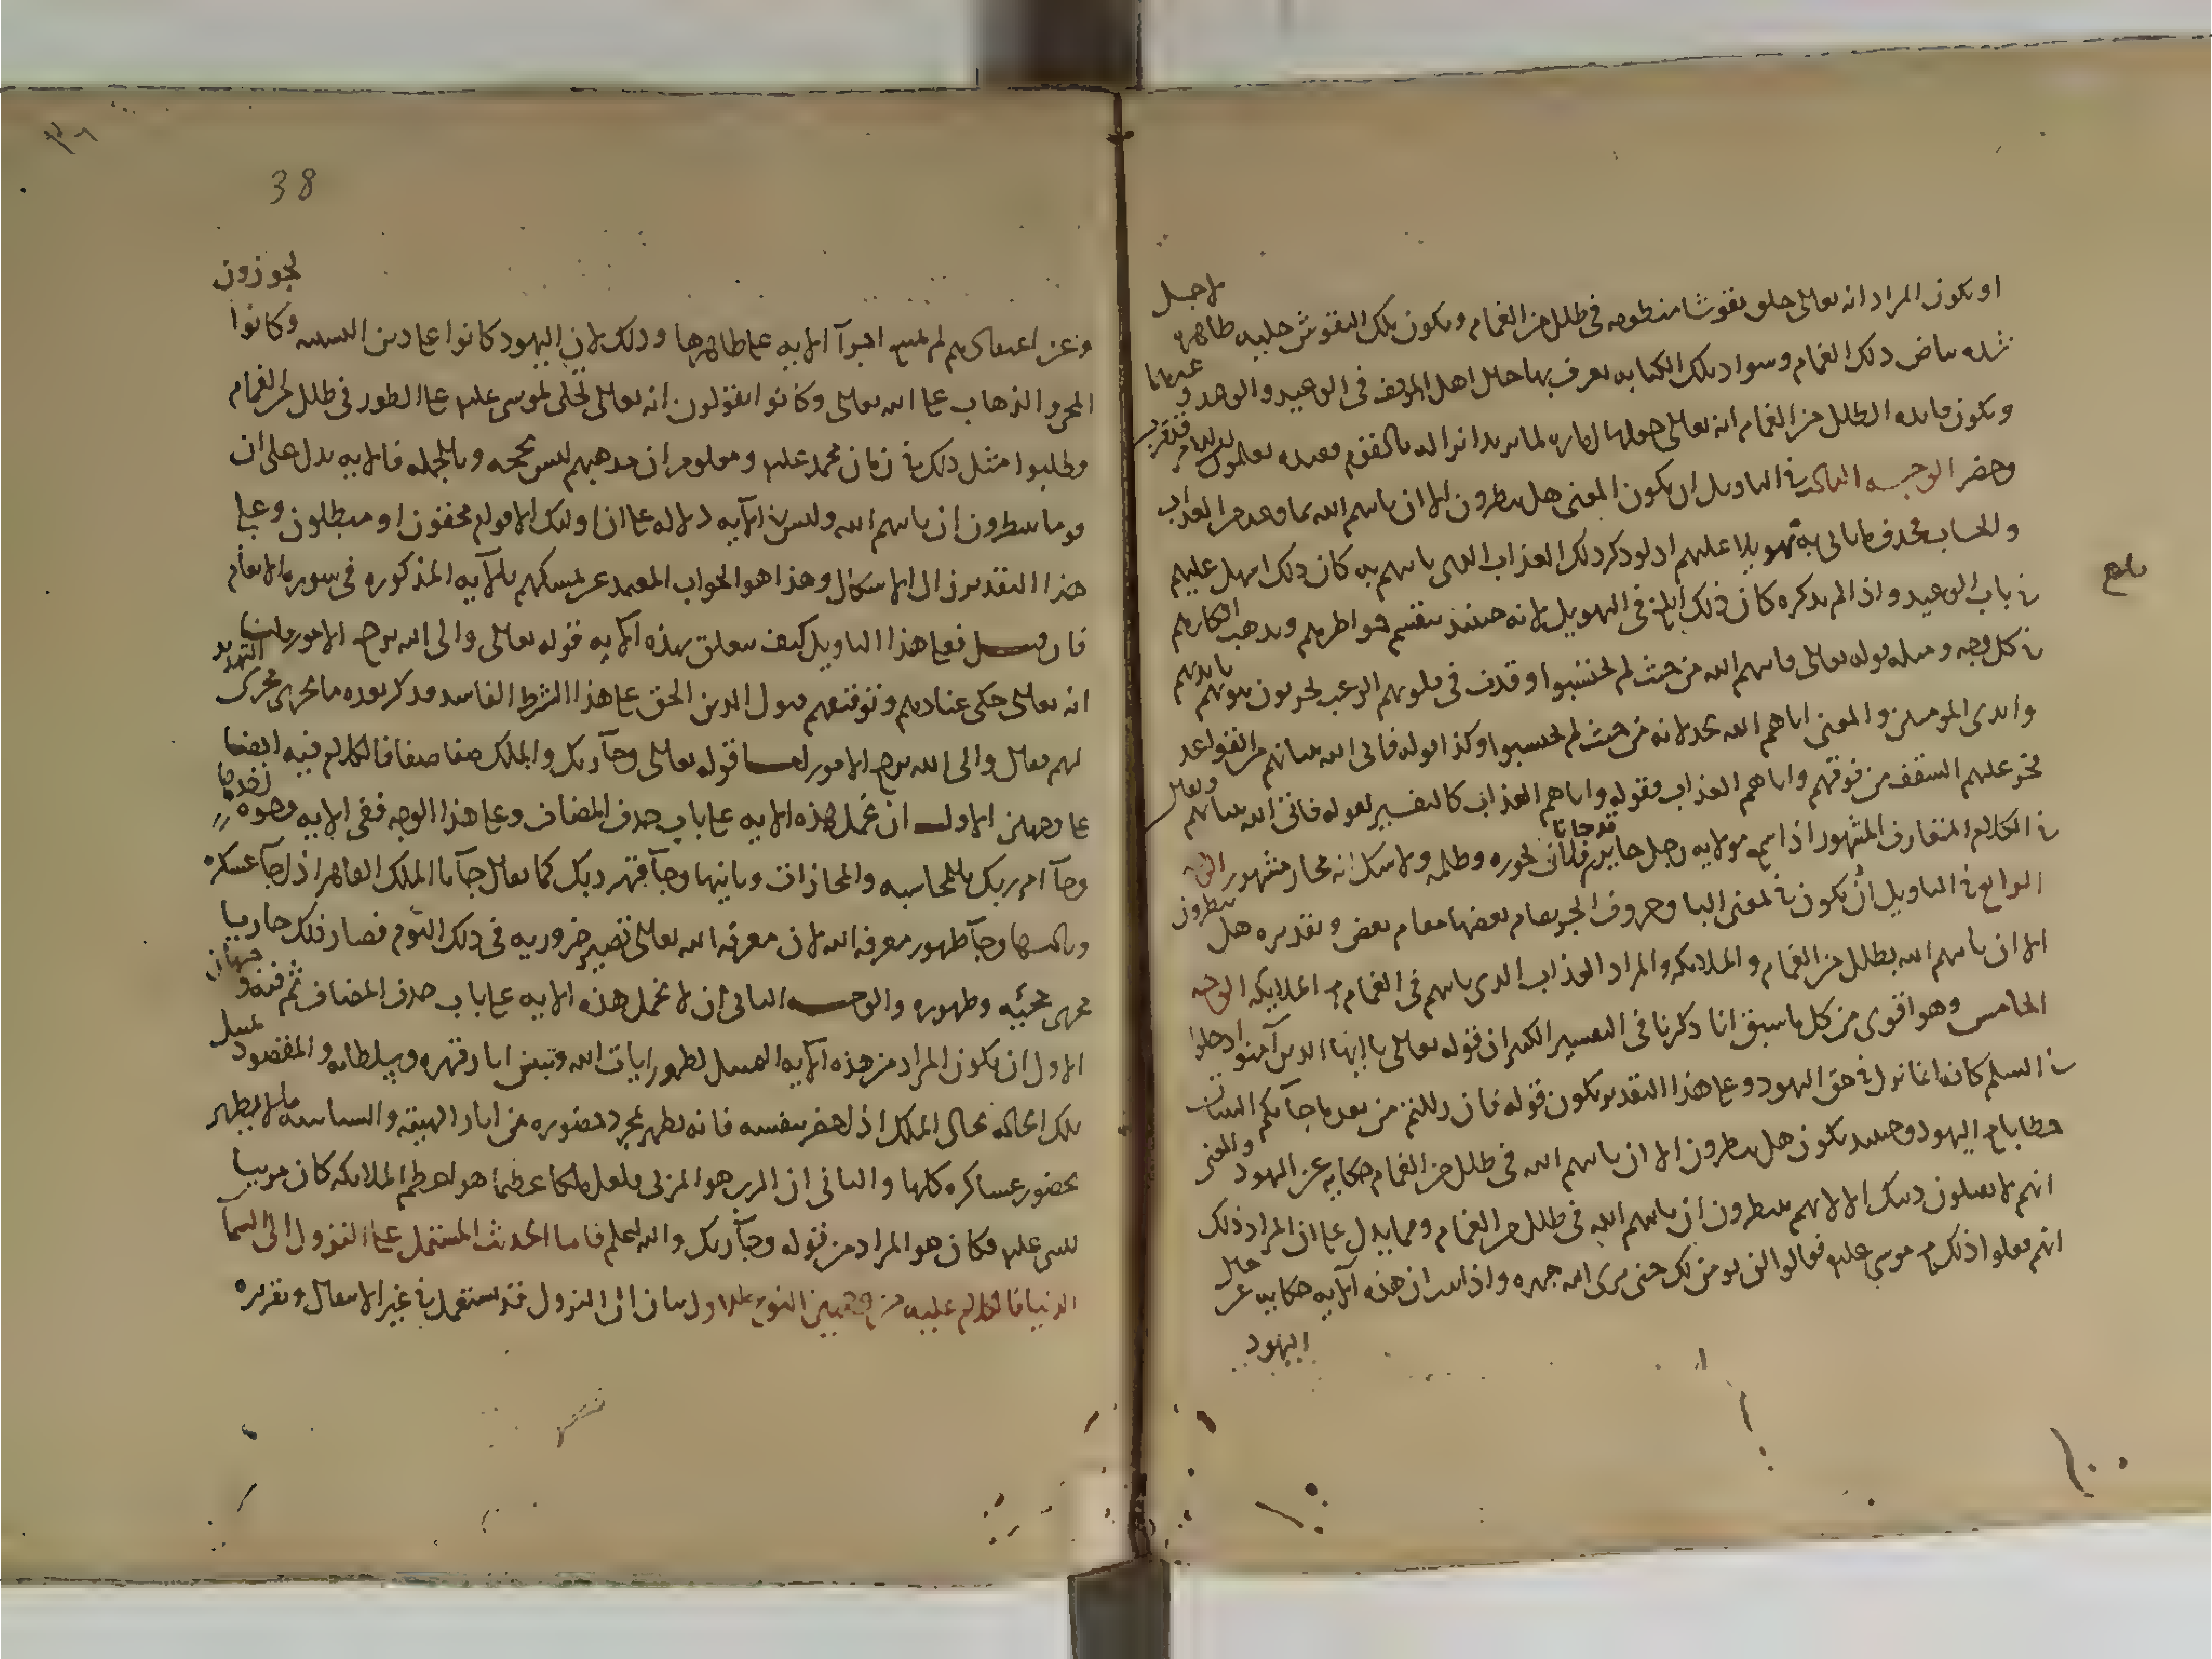 او يكون المراد انه تعالى خلق نقوشا منظومه في ظلل من الغمام ويكون تلك النقوش جليه ظاهره لاجل
شده بياض ذلك الغمام وسواد تلك الكتابه يعرف بها حال اهل الموقف في الوعيد والوعد وغيرهما
ويكون فايده الظلل من الغمام انه تعالى جعلها اماره لما يريد انزاله بالقوم فعنده يعلمون ان الامر قد قرب
وحضر الوجه الثالث في التاويل ان يكون المعنى هل ينظرون الا ان ياتيهم الله بما وعد من العذاب
والحساب فحذف ما ياتى به تهويلا عليهم اذ لو ذكر ذلك العذاب الذى ياتيهم به كان ذلك اسهل عليهم
في باب الوعيد واذا لم يذكره كان ذلك ابلغ في التهويل لانه حينئذ ينقسم خواطرهم ويذهب افكارهم
في كل وجه ومثله قوله تعالى فاتيهم الله من حيث لم يحتسبوا وقذف في قلوبهم الرعب يخربون بيوتهم بايديهم
وايدى المومنين والمعنى اتاهم الله بخذلانه من حيث لم يحتسبوا وكذا قوله فاتى الله بنيانهم من القواعد
فخر عليهم السقف من فوقهم واتاهم العذاب فقوله واتاهم العذاب كالتفسير لقوله فاتى الله بنيانهم ويقال
في الكلام المتعارف المشهور اذا سمع بولايه رجل جاير قد جانا فلان بجوره وظلمه ولا شك انه مجاز مشهور الوجه
الرابع في التاويل ان يكون في بمعنى البا وحروف الجر يقام بعضها مقام بعض وتقديره هل ينظرون
الا ان ياتيهم الله بظلل من الغمام والملايكه والمراد العذاب الذى ياتيهم في الغمام مع الملايكه الوجه
الخامس وهو اقوى من كل ما سبق انا ذكرنا في التفسير الكبير ان قوله تعالى يا ايها الذين آمنوا ادخلوا
في السلم كافه انما نزل في حق اليهود وعلى هذا التقدير يكون قوله فان زللتم من بعد ما جآتكم البينات
خطابا مع اليهود وحينئذ يكون هل ينظرون الا ان ياتيهم الله في ظلل من الغمام حكايه عن اليهود والمعنى
انهم لا يقبلون دينك الا لانهم ينتظرون ان ياتيهم الله في ظلل من الغمام ومما يدل على ان المراد ذلك
انهم فعلوا ذلك مع موسى عليه فقالوا لن نومن لك حتى نرى الله جهره واذا ثبت ان هذه الآيه حكايه عن حال
اليهود
بلغ
38
وعن اعتقادهم لم يمنع اجرآ الآيه على ظاهرها وذلك لان اليهود كانوا على دين التشبيه وكانوا يجوزون
المجى والذهاب على الله تعالى وكانوا يقولون انه تعالى تجلى لموسى عليه على الطور في ظلل من الغمام
وطلبوا مثل ذلك في زمان محمد عليه ومعلوم ان مذهبهم ليس بحجه وبالجمله فالايه يدل على ان
قوما ينتظرون ان ياتيهم الله وليس في الآيه دلاله على ان اوليك الاقوام محقون او مبطلون وعلى
هذا التقدير زال الاشكال وهذا هو الجواب المعتمد عن تمسكهم بالآيه المذكوره في سوره الانعام
فان قيل فعلى هذا التاويل كيف يتعلق بهذه الآيه قوله تعالى والى الله ترجع الامور قلنا
انه تعالى حكى عنادهم وتوقفهم قبول الدين الحق على هذا الشرط الفاسد فذكر بعده ما يجرى مجرى التهديد
لهم فقال والى الله ترجع الامور اما قوله تعالى وجآ ربك والملك صفا صفا فالكلام فيه ايضا
على وجهين الاول ان نحمل هذه الايه على باب حذف المضاف وعلى هذا الوجه ففى الايه وجوه احدها
وجآ امر ربك بالمحاسبه والمجازات وثانيها وجآ قهر ربك كما يقال جآنا الملك القاهر اذا جآ عسكره
وثالثها وجآ ظهور معرفه الله لان معرفه الله تعالى تصير ضروريه في ذلك اليوم فصار ذلك جاريا
مجرى مجيئه وظهوره والوجه الثانى ان لا نحمل هذه الايه على باب حذف المضاف ثم فيه وجهان
الاول ان يكون المراد من هذه الآيه التمثيل لظهور ايات الله وتبيين اثار قهره وسلطانه والمقصود تمثيل
تلك الحاله بحال الملك اذا حضر بنفسه فانه يظهر بمجرد حضوره من اثار الهيبه والسياسه ما لا يظهر
بحضور عساكره كلها والثانى ان الرب هو المربى فلعل ملكا عظيما هو اعظم الملايكه كان مربيا
للنبى عليه فكان هو المراد من قوله وجآ ربك والله اعلم فاما الحديث المشتمل على النزول الى السما
الدنيا فالكلام عليه من وجهين النوع الاول بيان ان النزول قد يستعمل في غير الانتقال وتقريره